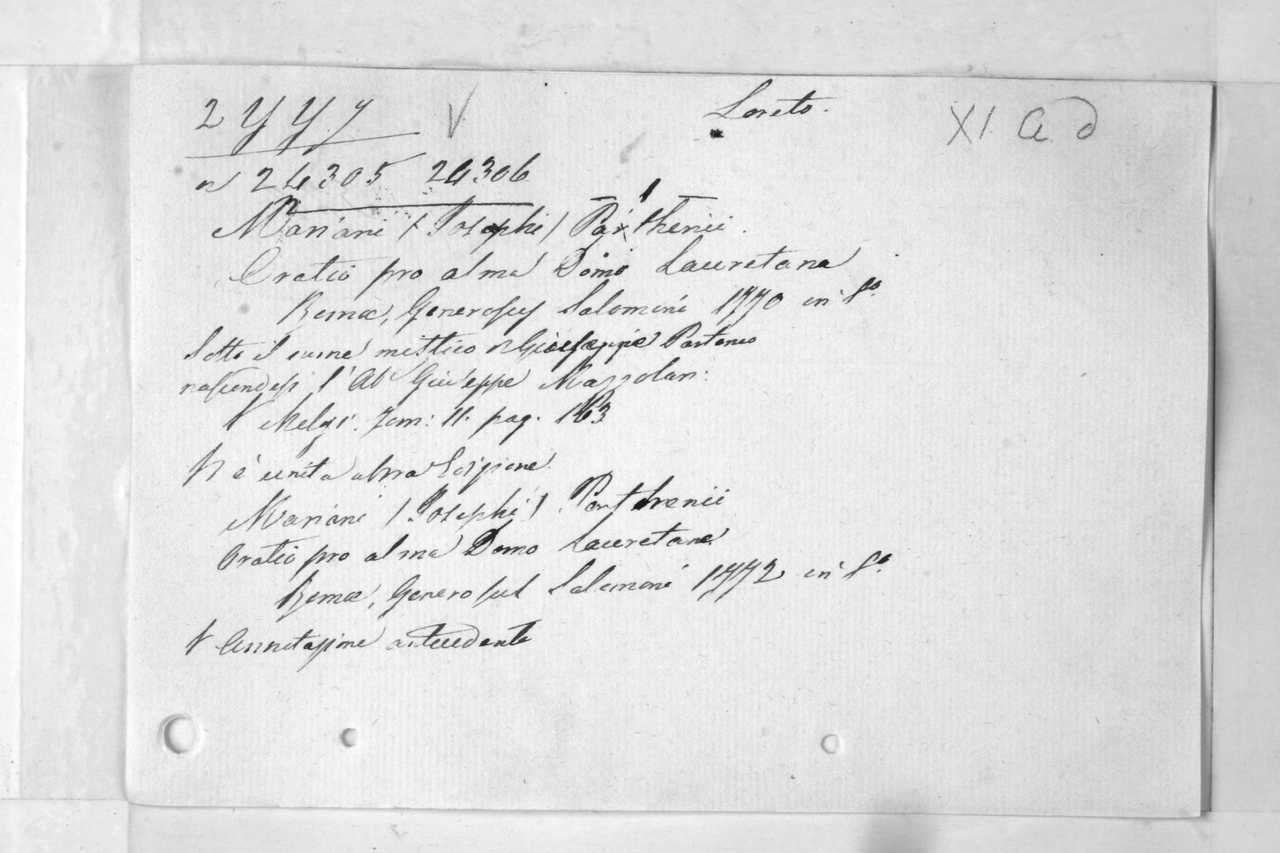 2 Y Y. 7
V
Loreto.
XI. a d
n 24305 24306
Mariani (Josephi) Parthenii.
Oratio pro alma Domo Lauretana
Romæ, Generosus Salomoni 1770 in 8º.
Sotto il nome mistico di Gioseppe Partenio
nascondesi l'Ab Giuseppe Mazzolari:
V Melzi. Tom: II. pag. 163
Vi è unita altra edizione.
Mariani (Josephi) Parthenii
Oratio pro alma Domo Lauretana
Romæ, Generosus Salomoni 1772 in 8º.
V Annotazione antecedente